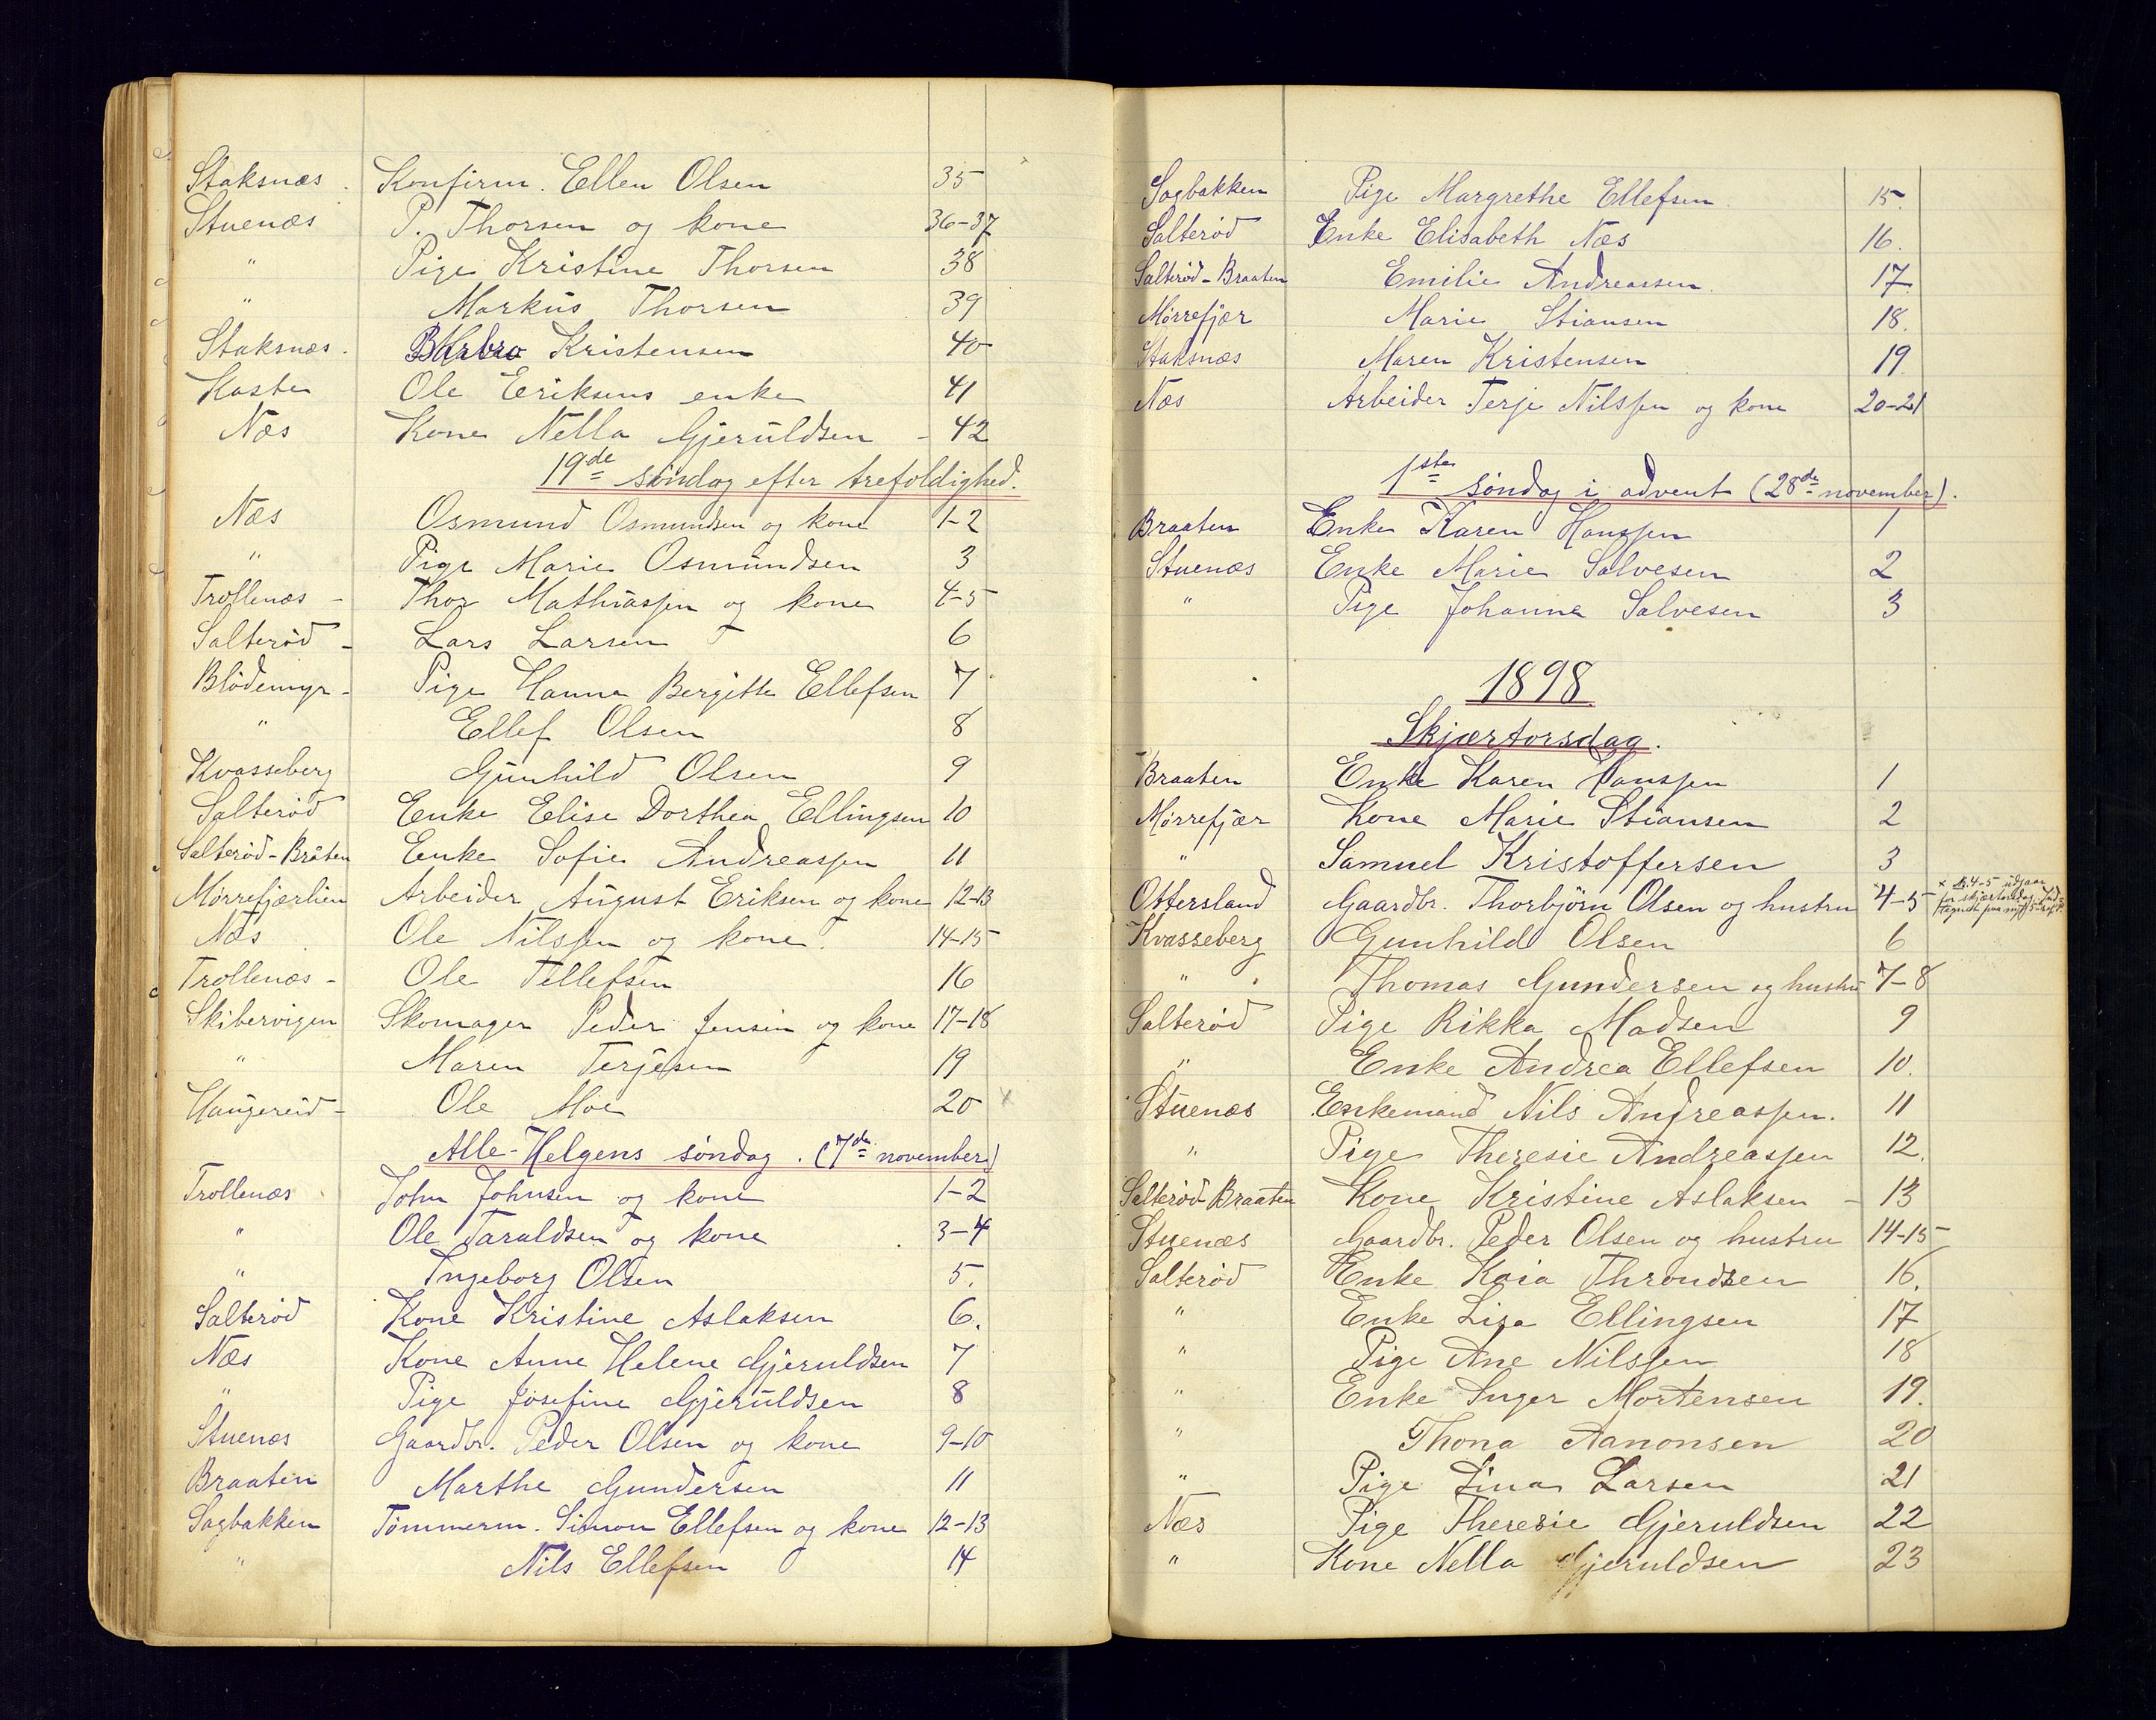 Staksnæs. Konfirm. Ellen Olsen 35
Stuenæs P. Thorsen og kone 36-37
" Pige Kristine Thorsen 38
" Markus Thorsen 39
Staksnæs. Barbro Kristensen 40
Kasten Ole Eriksens enke 41
Næs Kone Nella Gjeruldsen - 42
19de søndag efter trefoldighed.
Næs Osmund Osmundsen og kone 1-2
" Pige Marie Osmundsen 3
Trollenæs - Thor Mathiassen og kone 4-5
Salterød - Lars Larsen 6
Blødemyr - Pige Hanna Bergitte Ellefsen 7
" Ellef Olsen 8
Kvasseberg Gunhild Olsen 9
Salterød Enke Elise Dorthea Ellingsen 10
Salterød-Bråten Enke Sofie Andreassen 11
Mørrefjærlien Arbeider August Eriksen og kone 12-13
Næs Ole Nilssen og kone. 14-15
Trollenæs - Ole Tellefsen 16
Skibervigen Skomager Peder Jensen og kone 17-18
" Maren Terjesen 19
Haugereid - Ole Moe 20 x
Alle-Helgens søndag. (7de november)
Trollenæs John Johnsen og kone 1-2
" Ole Taraldsen og kone 3-4
" Ingeborg Olsen 5.
Salterød Kone Kristine Aslaksen 6.
Næs Kone Anne Helene Gjeruldsen 7
" Pige Josefine Gjeruldsen 8
Stuenæs Gaardbr. Peder Olsen og kone 9-10
Braaten Marthe Gundersen 11
Sagbakken Tømmerm. Simon Ellefsen og kone 12-13
" Nils Ellefsen 14
Sagbakken Pige Margrethe Ellefsen 15.
Salterød Enke Elisabeth Næs 16.
Salterød-Braaten Emilie Andreassen. 17.
Mørrefjær Marie Stiansen 18.
Staksnæs Maren Kristensen 19
Næs Arbeider Terje Nilssen og kone 20-21
1ste søndag i advent (28de november).
Braaten Enke Karen Hanssen 1
Stuenæs Enke Marie Salvesen 2
" Pige Johanne Salvesen 3
1898
Skjærtorsdag.
Braaten Enke Karen Hanssen 1
Mørrefjær Kone Marie Stiansen 2
" Samuel Kristoffersen 3
Ottersland Gaardbr. Thorbjørn Olsen og hustru 4-5 x N. 4-5 udgaar for skjærtorsdag.
Kvasseberg Gunhild Olsen 6
" Thomas Gundersen og hustru 7-8
Salterød Pige Rikka Madsen 9
" Enke Andrea Ellefsen 10.
Stuenæs Enkemand Nils Andreassen. 11
" Pige Theresie Andreassen 12.
Salterød-Braaten Kone Kristine Aslaksen - 13
Stuenæs Gaardbr. Peder Olsen og hustru 14-15
Salterød Enke Kaia Throndsen 16.
" Enke Lisa Ellingsen 17
" Pige Ane Nilssen 18
" Enke Inger Mortensen 19.
" Thona Aanonsen 20
" Pige Lina Larsen 21
Næs Pige Theresie Gjeruldsen 22
" Kone Nella Gjeruldsen 23